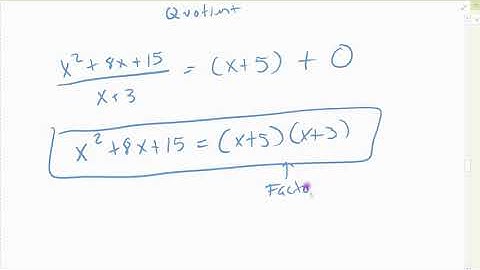 Quotient
x² + 8x + 15 / x + 3 = (x+5) + 0
x² + 8x + 15 = (x+5)(x+3)
Facto